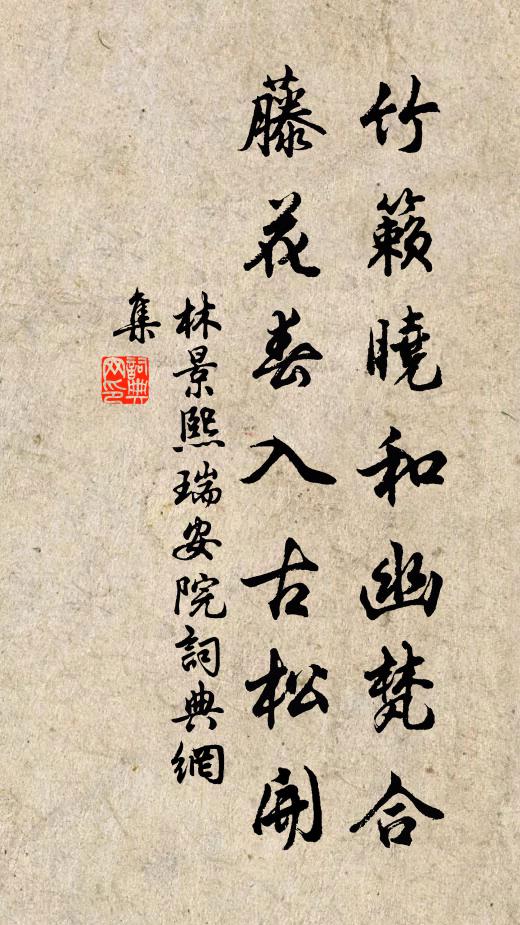 竹籟曉和幽梵合
藤花春入古松開
林景熙瑞安院詞典網
集
詞典網印